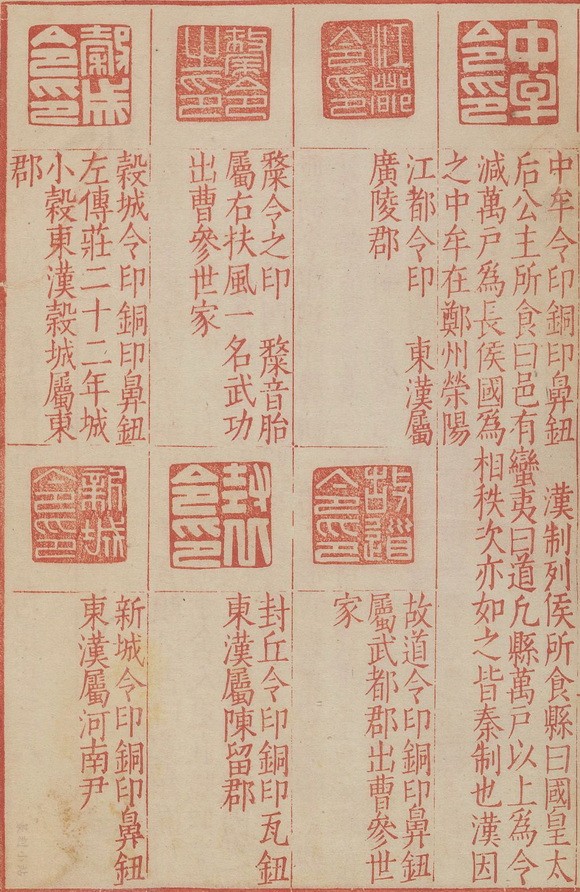 中牟令印
中牟令印銅印鼻鈕 漢制列侯所食縣曰國皇太
后公主所食曰邑有蠻夷曰道凡縣萬戶以上爲令
減萬戶爲長侯國爲相秩次亦如之皆秦制也漢因
之中牟在鄭州榮陽
江都令印
江都令印 東漢屬
廣陵郡
斄令之印
斄令之印 斄音胎
屬右扶風一名武功
出曹參世家
穀城令印
穀城令印銅印鼻鈕
左傳莊二十二年城
小穀東漢穀城屬東
郡
故道令印
故道令印銅印鼻鈕
屬武都郡出曹參世
家
封丘令印
封丘令印銅印瓦鈕
東漢屬陳留郡
新城令印
新城令印銅印鼻鈕
東漢屬河南尹